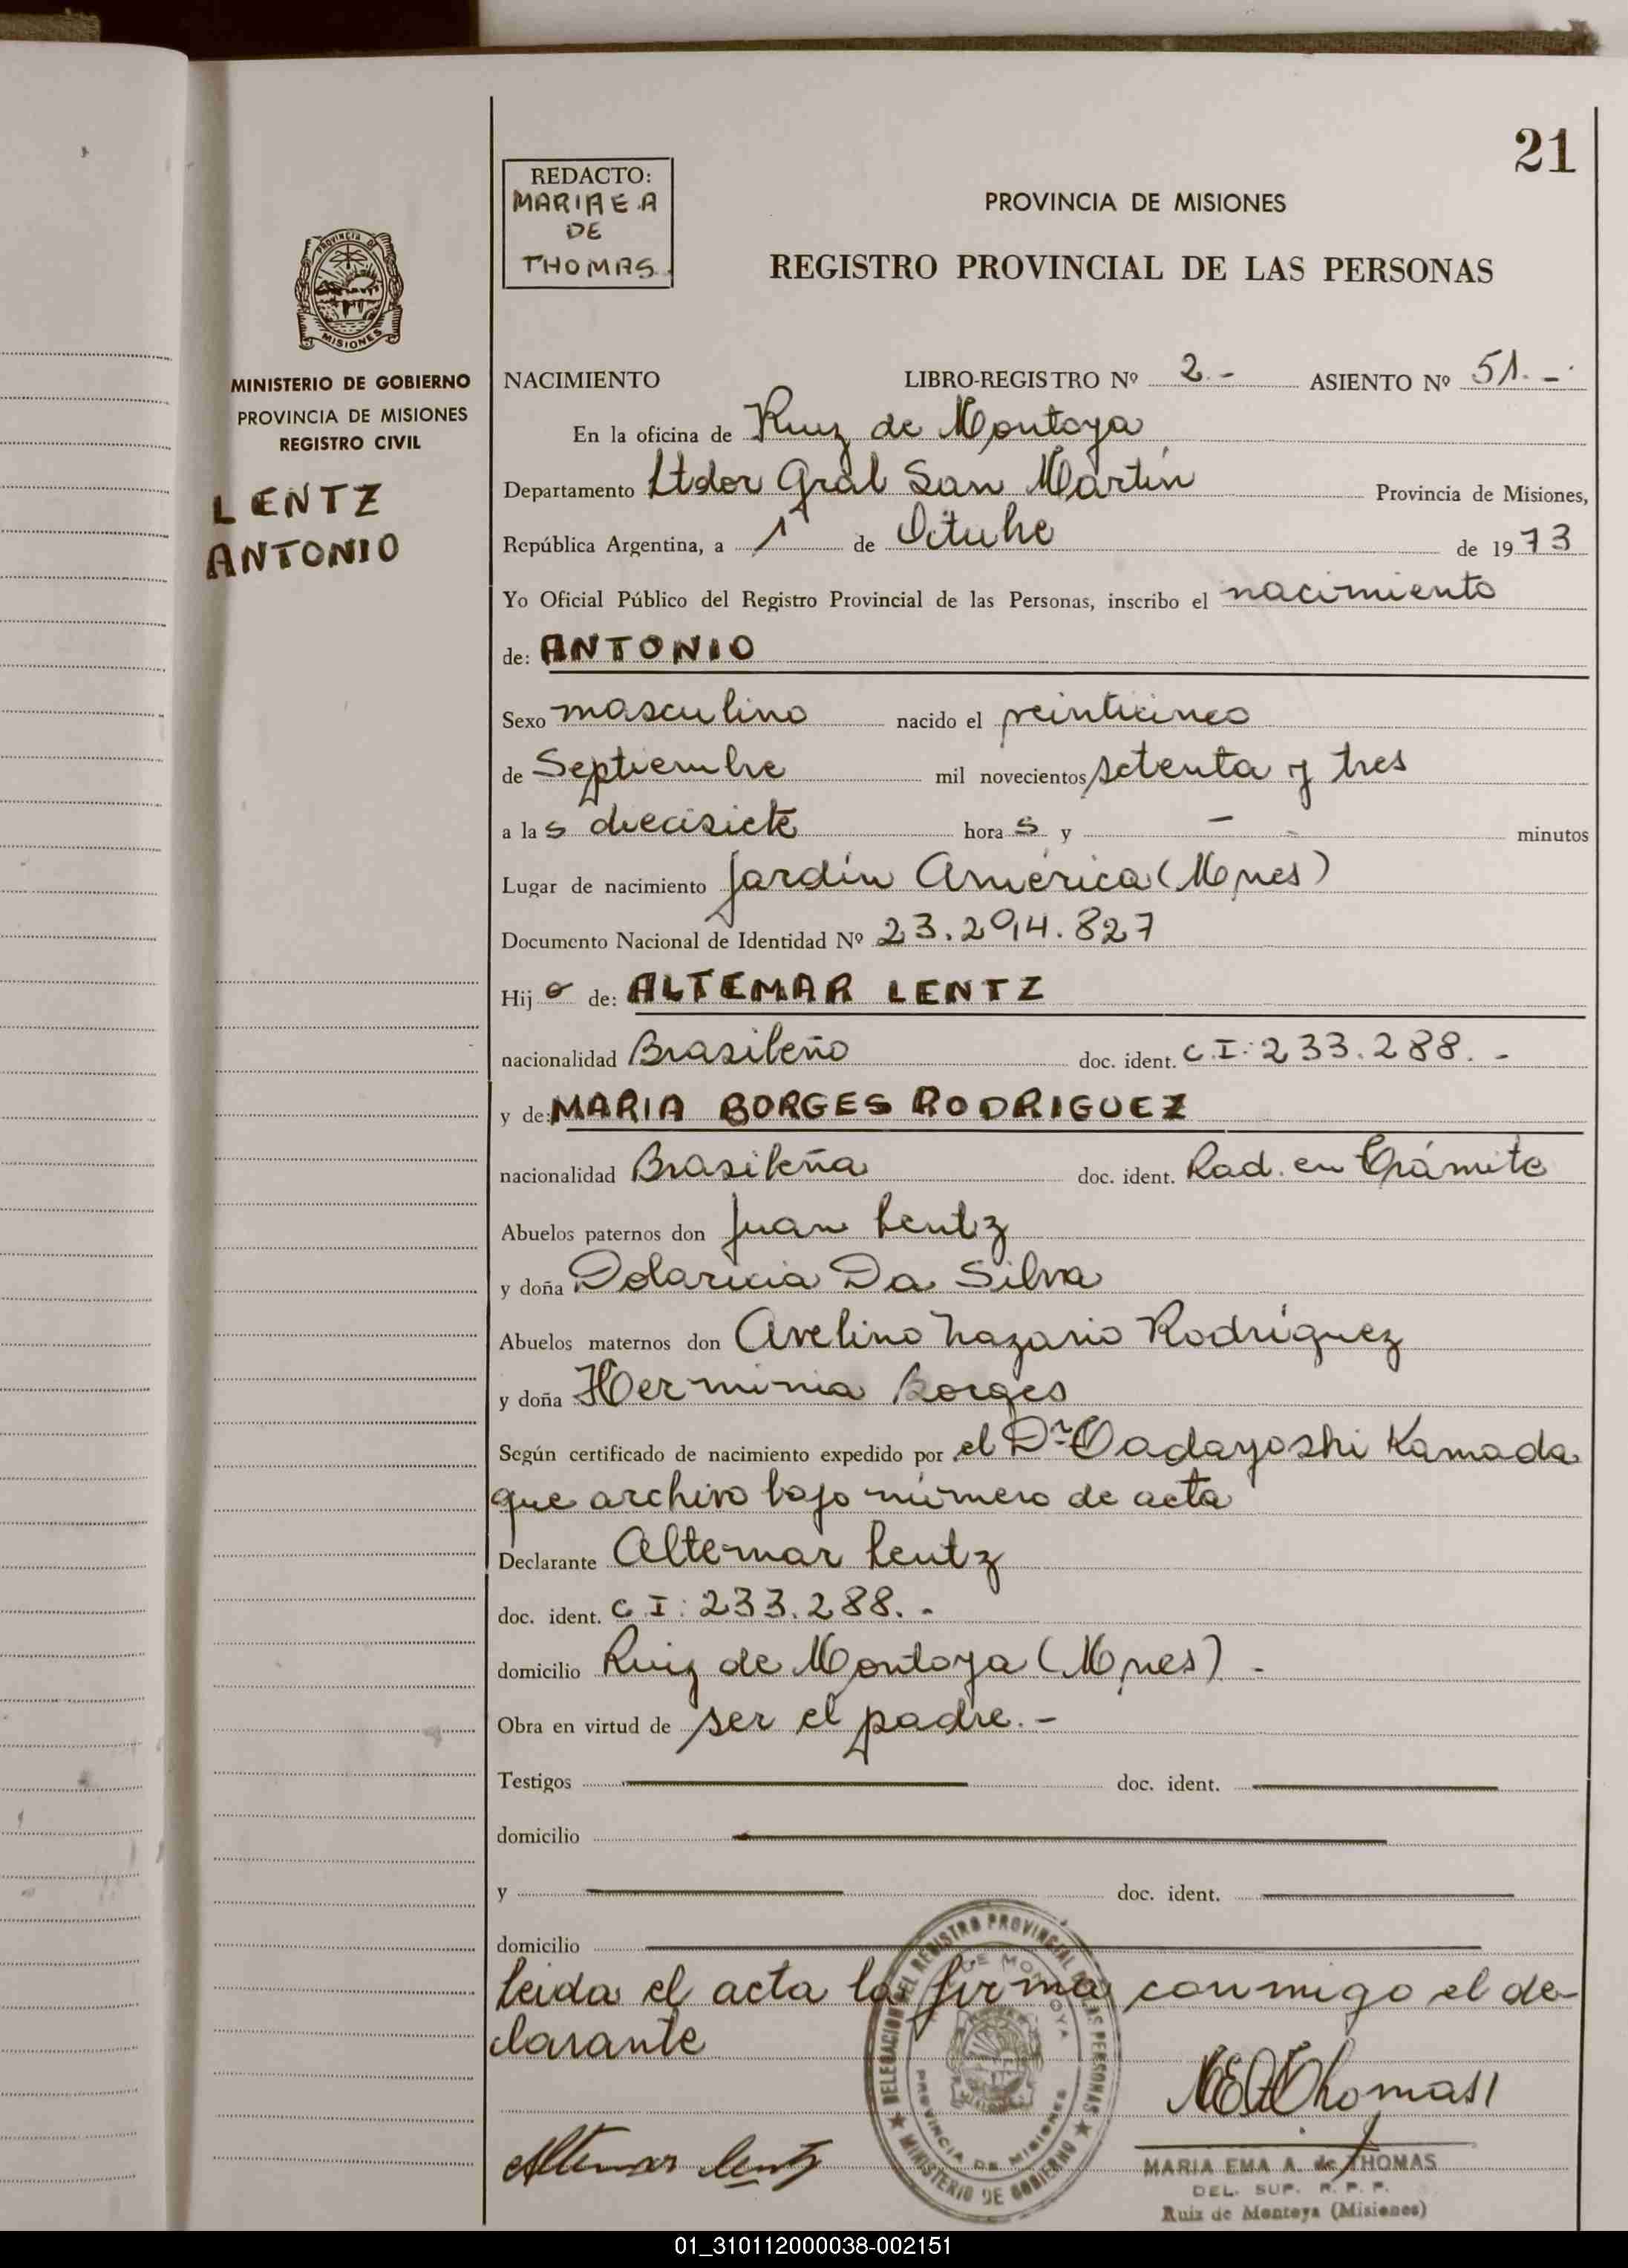 21
REDACTO:
MARIA E.A
DE
THOMAS.
PROVINCIA DE MISIONES
REGISTRO PROVINCIAL DE LAS PERSONAS
PROVINCIA DE
MISIONES
MINISTERIO DE GOBIERNO
PROVINCIA DE MISIONES
REGISTRO CIVIL
LENTZ
ANTONIO
NACIMIENTO LIBRO-REGISTRO Nº 2.- ASIENTO Nº 51.-
En la oficina de Ruiz de Montoya
Departamento Ltdor Gral San Martín Provincia de Misiones,
República Argentina, a 1º de Octubre de 1973
Yo Oficial Público del Registro Provincial de las Personas, inscribo el nacimiento
de: ANTONIO
Sexo masculino nacido el veinticinco
de Septiembre mil novecientos setenta y tres
a las diecisiete horas y - minutos
Lugar de nacimiento Jardín América (Mnes)
Documento Nacional de Identidad Nº 23.294.827
Hijo de: ALTEMAR LENTZ
nacionalidad Brasileño doc. ident. C.I: 233.288.-
y de: MARIA BORGES RODRIGUEZ
nacionalidad Brasileña doc. ident. Rad. en Trámite
Abuelos paternos don Juan Lentz
y doña Dolaricia Da Silva
Abuelos maternos don Avelino Nazario Rodríguez
y doña Herminia Borges
Según certificado de nacimiento expedido por el Dr Tadayoshi Kamada
que archivo bajo número de acta
Declarante Altemar Lentz
doc. ident. C.I: 233.288.-
domicilio Ruiz de Montoya (Mnes) -
Obra en virtud de ser el padre.-
Testigos doc. ident.
domicilio
y doc. ident.
domicilio
Leida el acta la firma conmigo el de-
clarante
DELEGACION DEL REGISTRO PROVINCIAL DE LAS PERSONAS
MINISTERIO DE GOBIERNO
DE MONTOYA
PROVINCIA DE MISIONES
MEAThomas
Altemar Lentz
MARIA EMA A. de THOMAS
DEL. SUP. R. P. P.
Ruiz de Montoya (Misiones)
01_310112000038-002151